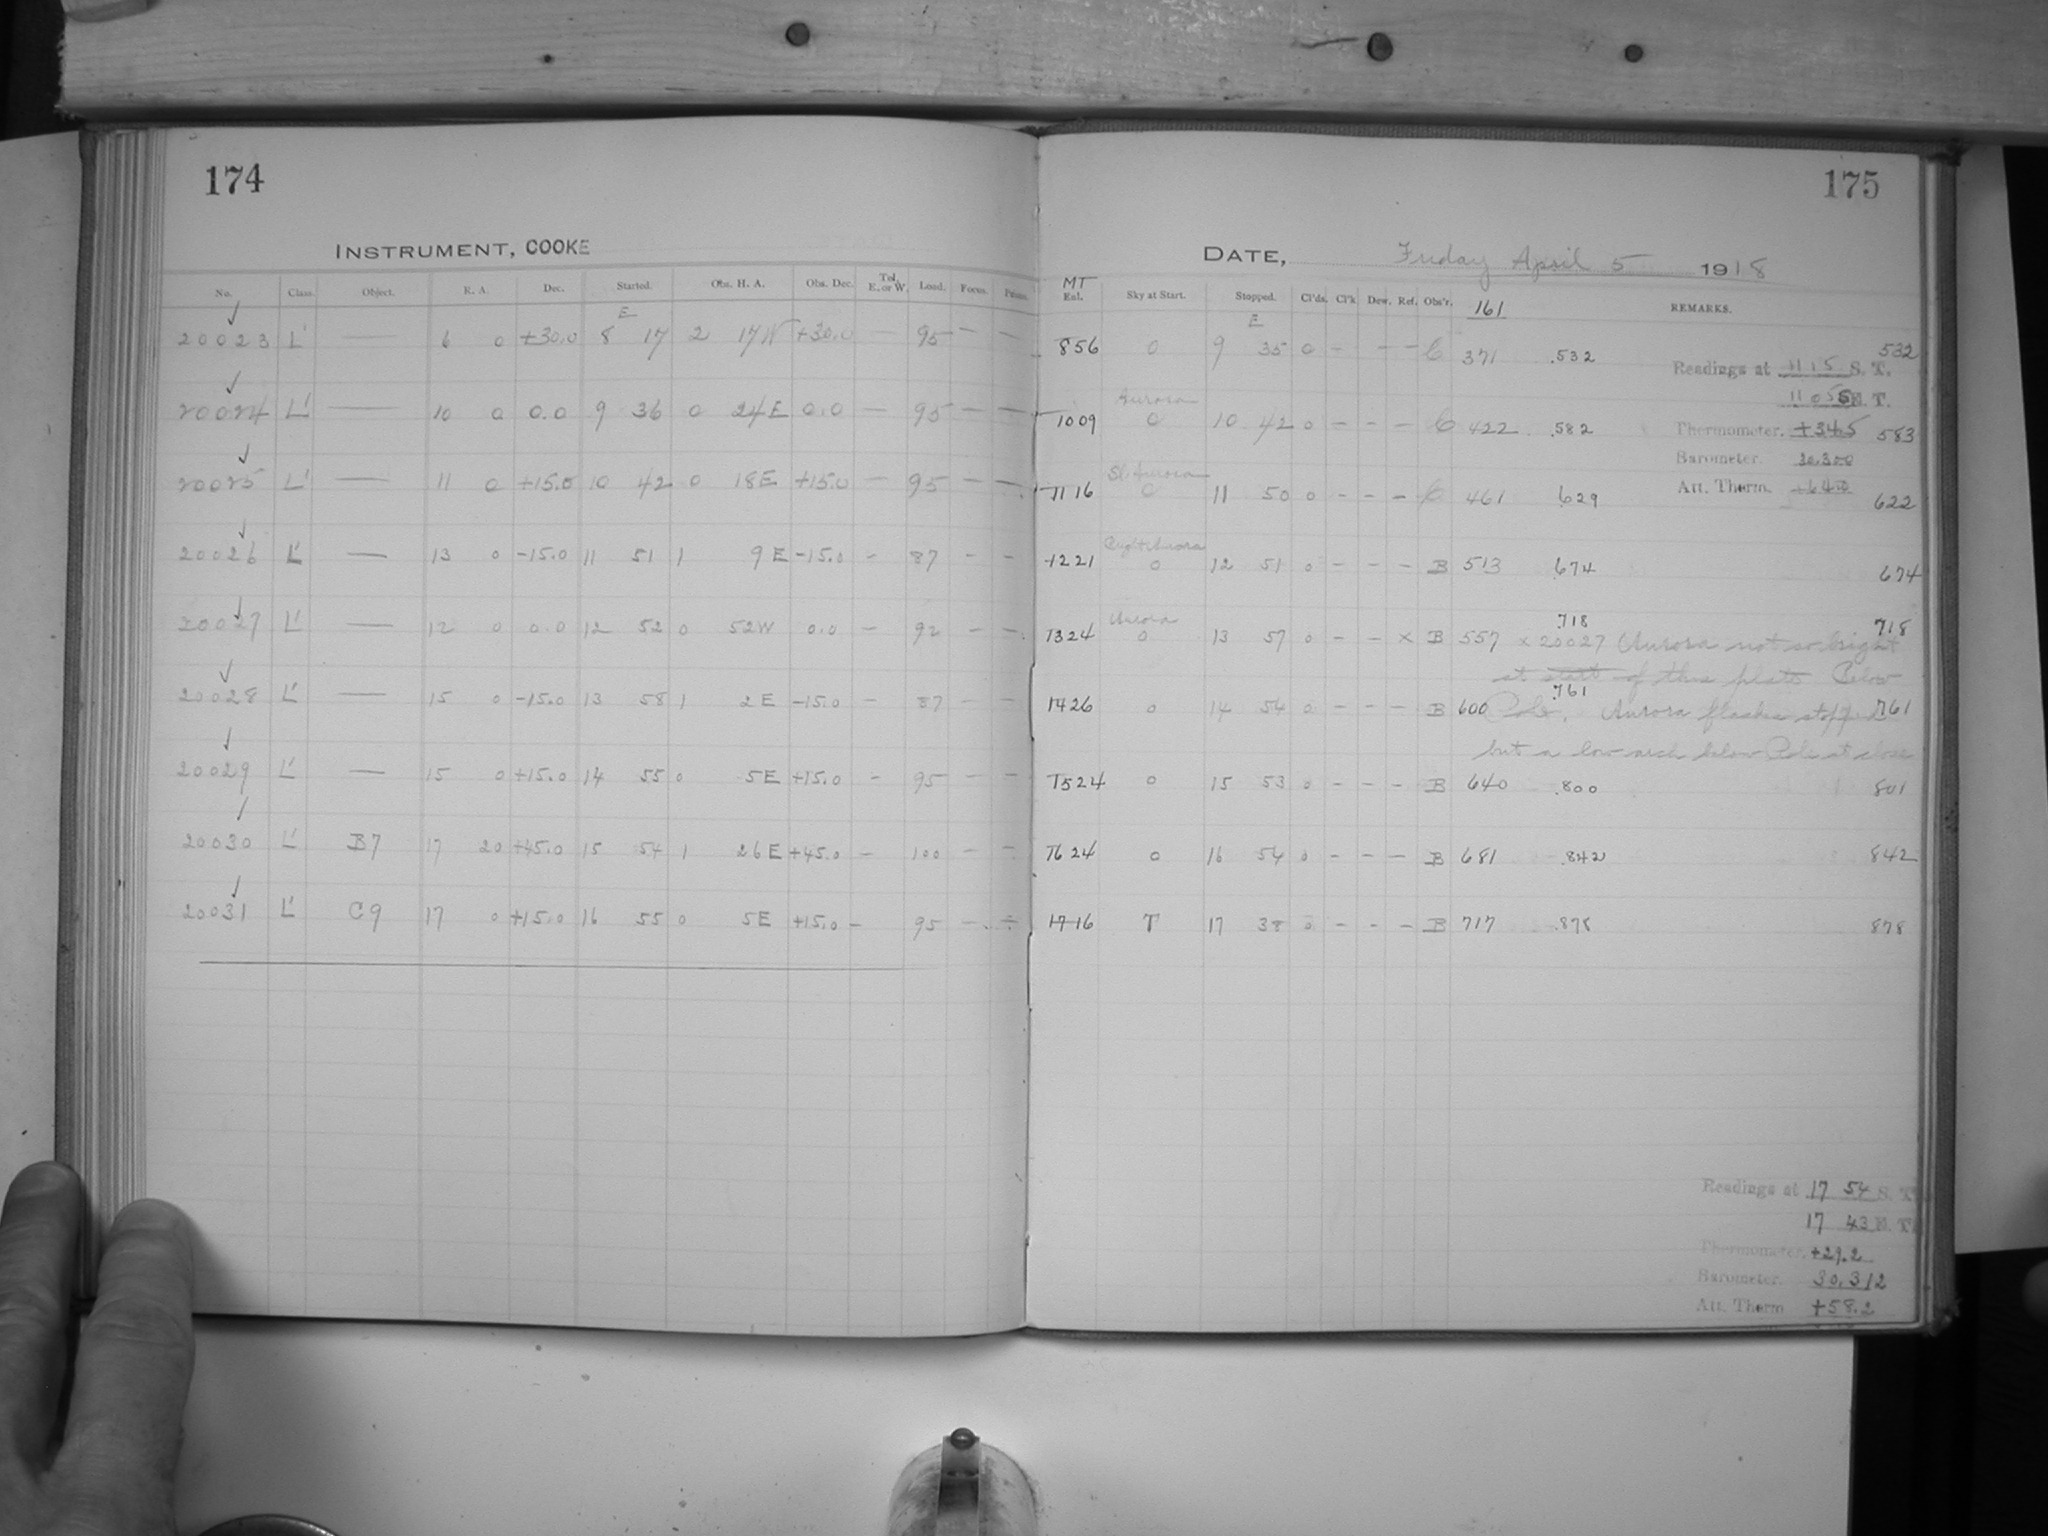 174
INSTRUMENT, COOKE
No. Class. Object. R. A. Dec. Started. Obs. H. A. Obs. Dec. Tel. E. or W. Load. Focus.
E
20023 L' — 6 0 +30.0 8 17 2 17W +30.0 — 95 — —
20024 L' — 10 0 0.0 9 36 0 24E 0.0 — 95 — —
20025 L' — 11 0 +15.0 10 42 0 18E +15.0 — 95 — —
20026 L' — 13 0 -15.0 11 51 1 9E -15.0 - 87 - -
20027 L' — 12 0 0.0 12 52 0 52W 0.0 - 92 - -
20028 L' — 15 0 -15.0 13 58 1 2E -15.0 - 87 - -
20029 L' — 15 0 +15.0 14 55 0 5E +15.0 - 95 - -
20030 L' B7 17 20 +45.0 15 54 1 26E +45.0 - 100 - -
20031 L' C9 17 0 +15.0 16 55 0 5E +15.0 - 95 - -
175
DATE, Friday April 5 1918
MT
Ent. Sky at Start. Stopped. Cl'ds. Cl'k Dew. Ref. Obs'r. 161 REMARKS.
E
856 0 9 35 0 - - - C 371 .532 532
Readings at 11 15 S. T.
Aurora
1009 0 10 42 0 - - - C 422 .582 583
Thermometer. +34.5
Barometer. 30.300
Att. Therm. +64.0
Sl. Aurora
1116 0 11 50 0 - - - C 461 .629 622
Bright Aurora
1221 0 12 51 0 - - - B 513 .674 674
Aurora
1324 0 13 57 0 - - x B 557 .718 718
x 20027 Aurora not so bright
at start of this plate Below
1426 0 14 54 0 - - - B 600 .761 761
Pole. Aurora flashes stopped
but a low arch below Pole at close
1524 0 15 53 0 - - - B 640 .800 801
1624 0 16 54 0 - - - B 681 .842 842
1716 T 17 38 0 - - - B 717 .878 878
Readings at 17 54 S. T.
17 43 E. T.
Thermometer. +29.2
Barometer. 30.312
Att. Therm +58.2